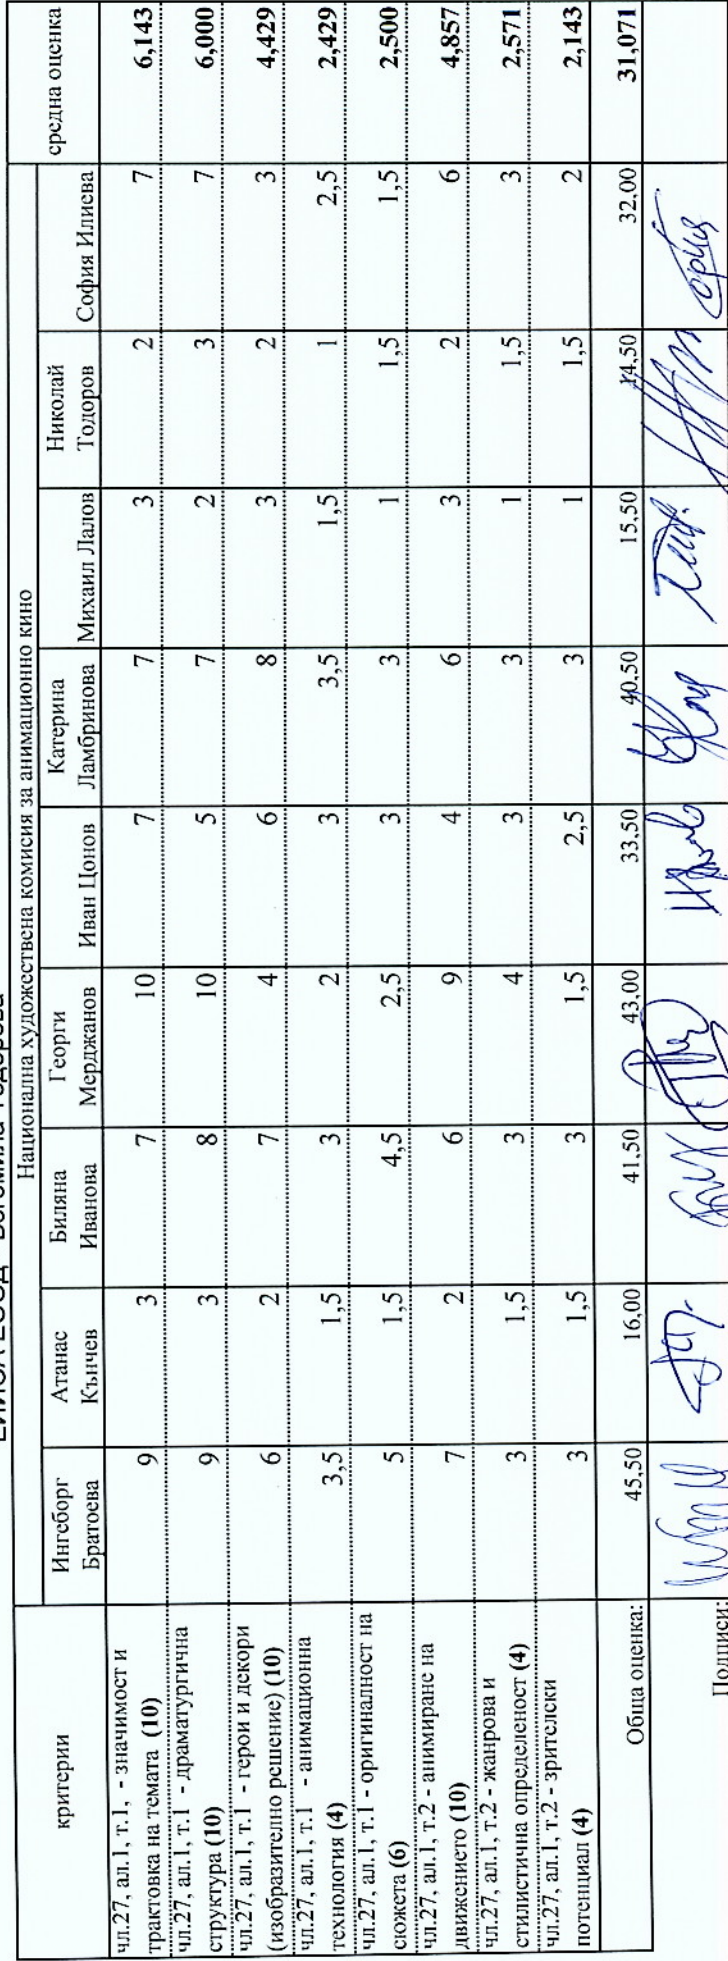 Национална художествена комисия за анимационно кино
критерии Ингеборг Братоева Атанас Кънчев Биляна Иванова Георги Мерджанов Иван Цонов Катерина Ламбринова Михаил Лалов Николай Тодоров София Илиева средна оценка
чл.27, ал.1, т.1, - значимост и
трактовка на темата (10) 9 3 7 10 7 7 3 2 7 6,143
чл.27, ал.1, т.1 - драматургична
структура (10) 9 3 8 10 5 7 2 3 7 6,000
чл.27, ал.1, т.1 - герои и декори
(изобразително решение) (10) 6 2 7 4 6 8 3 2 3 4,429
чл.27, ал.1, т.1 - анимационна
технология (4) 3,5 1,5 3 2 3 3,5 1,5 1 2,5 2,429
чл.27, ал.1, т.1 - оригиналност на
сюжета (6) 5 1,5 4,5 2,5 3 3 1 1,5 1,5 2,500
чл.27, ал.1, т.2 - анимиране на
движението (10) 7 2 6 9 4 6 3 2 6 4,857
чл.27, ал.1, т.2 - жанрова и
стилистична определеност (4) 3 1,5 3 4 3 3 1 1,5 3 2,571
чл.27, ал.1, т.2 - зрителски
потенциал (4) 3 1,5 3 1,5 2,5 3 1 1,5 2 2,143
Обща оценка: 45,50 16,00 41,50 43,00 33,50 40,50 15,50 14,50 32,00 31,071
Подписи: